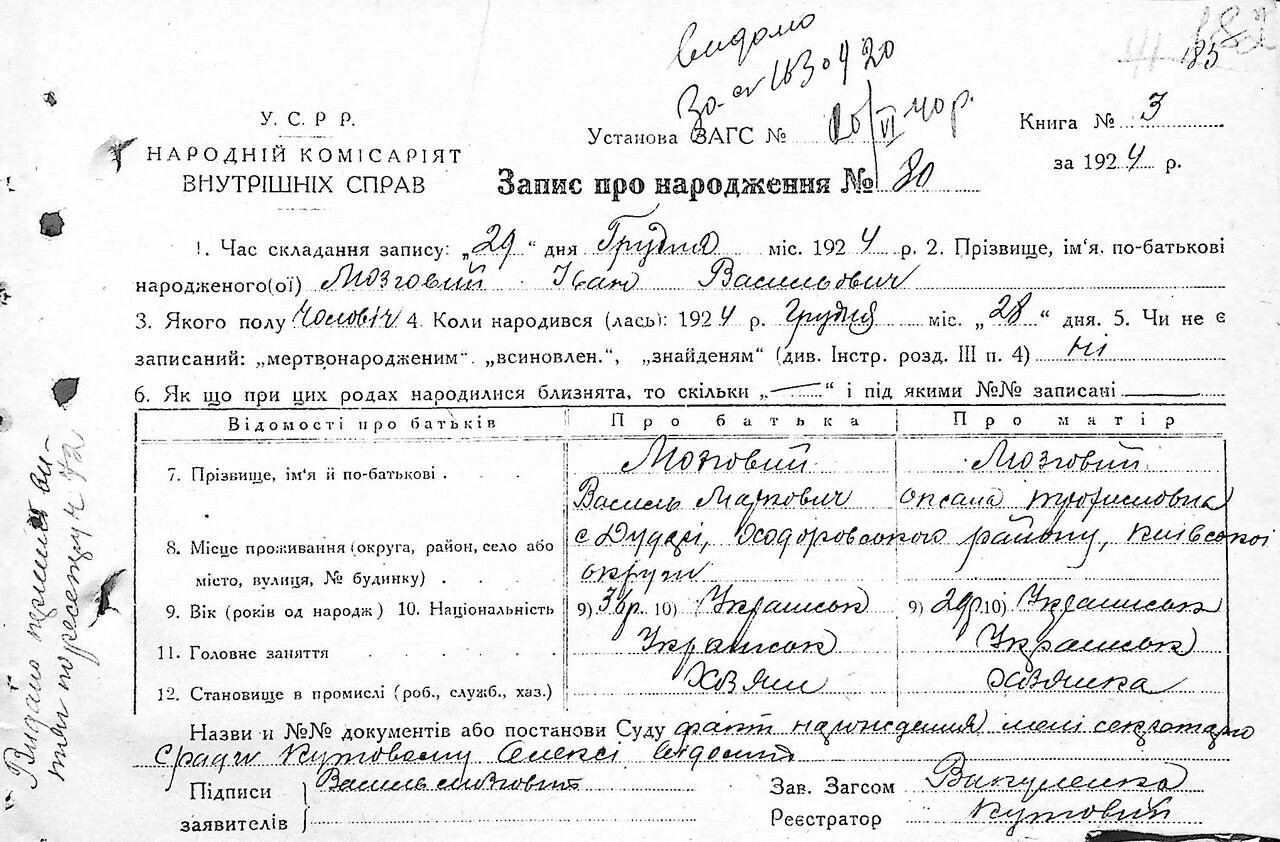 видомо
183
У. С. Р. Р.
НАРОДНІЙ КОМІСАРІЯТ
ВНУТРІШНІХ СПРАВ
Установа ЗАГС №
Книга № 3
за 1924 р.
Запис про народження № 30
1. Час складання запису: „29“ дня Грудня міс. 1924 р. 2. Прізвище, ім'я. по-батькові
народженого(ої) Мозговий Іван Васильович
3. Якого полу Чоловіч 4. Коли народився (лась): 1924 р. Грудня міс. „28“ дня. 5. Чи не є
записаний: „мертвонародженим“. „всиновлен.“, „знайденям“ (див. Інстр. розд. III п. 4) ні
6. Як що при цих родах народилися близнята, то скільки „—“ і під якими №№ записані
Відомості про батьків Про батька Про матір
7. Прізвище, ім'я й по-батькові . . . Мозговий Мозговий
Василь Маркович Оксана Трофимовна
8. Місце проживання (округа, район, село або с Дударі, Ходоровського району, Київської
місто, вулиця, № будинку) . . . . округи
9. Вік (років од народж) 10. Національність 9) 10) Українськ 9) 29р. 10) Українськ
11. Головне заняття . . . . . Українськ Українськ
12. Становище в промислі (роб., служб., хаз.) Хазяин Хазяика
Назви и №№ документів або постанови Суду факт нарождения мені секретарю
Сради Кутовому Олексі видомий
Підписи Василь Мозговий Зав. Загсом Вакуленко
заявителів Реєстратор Кутовий